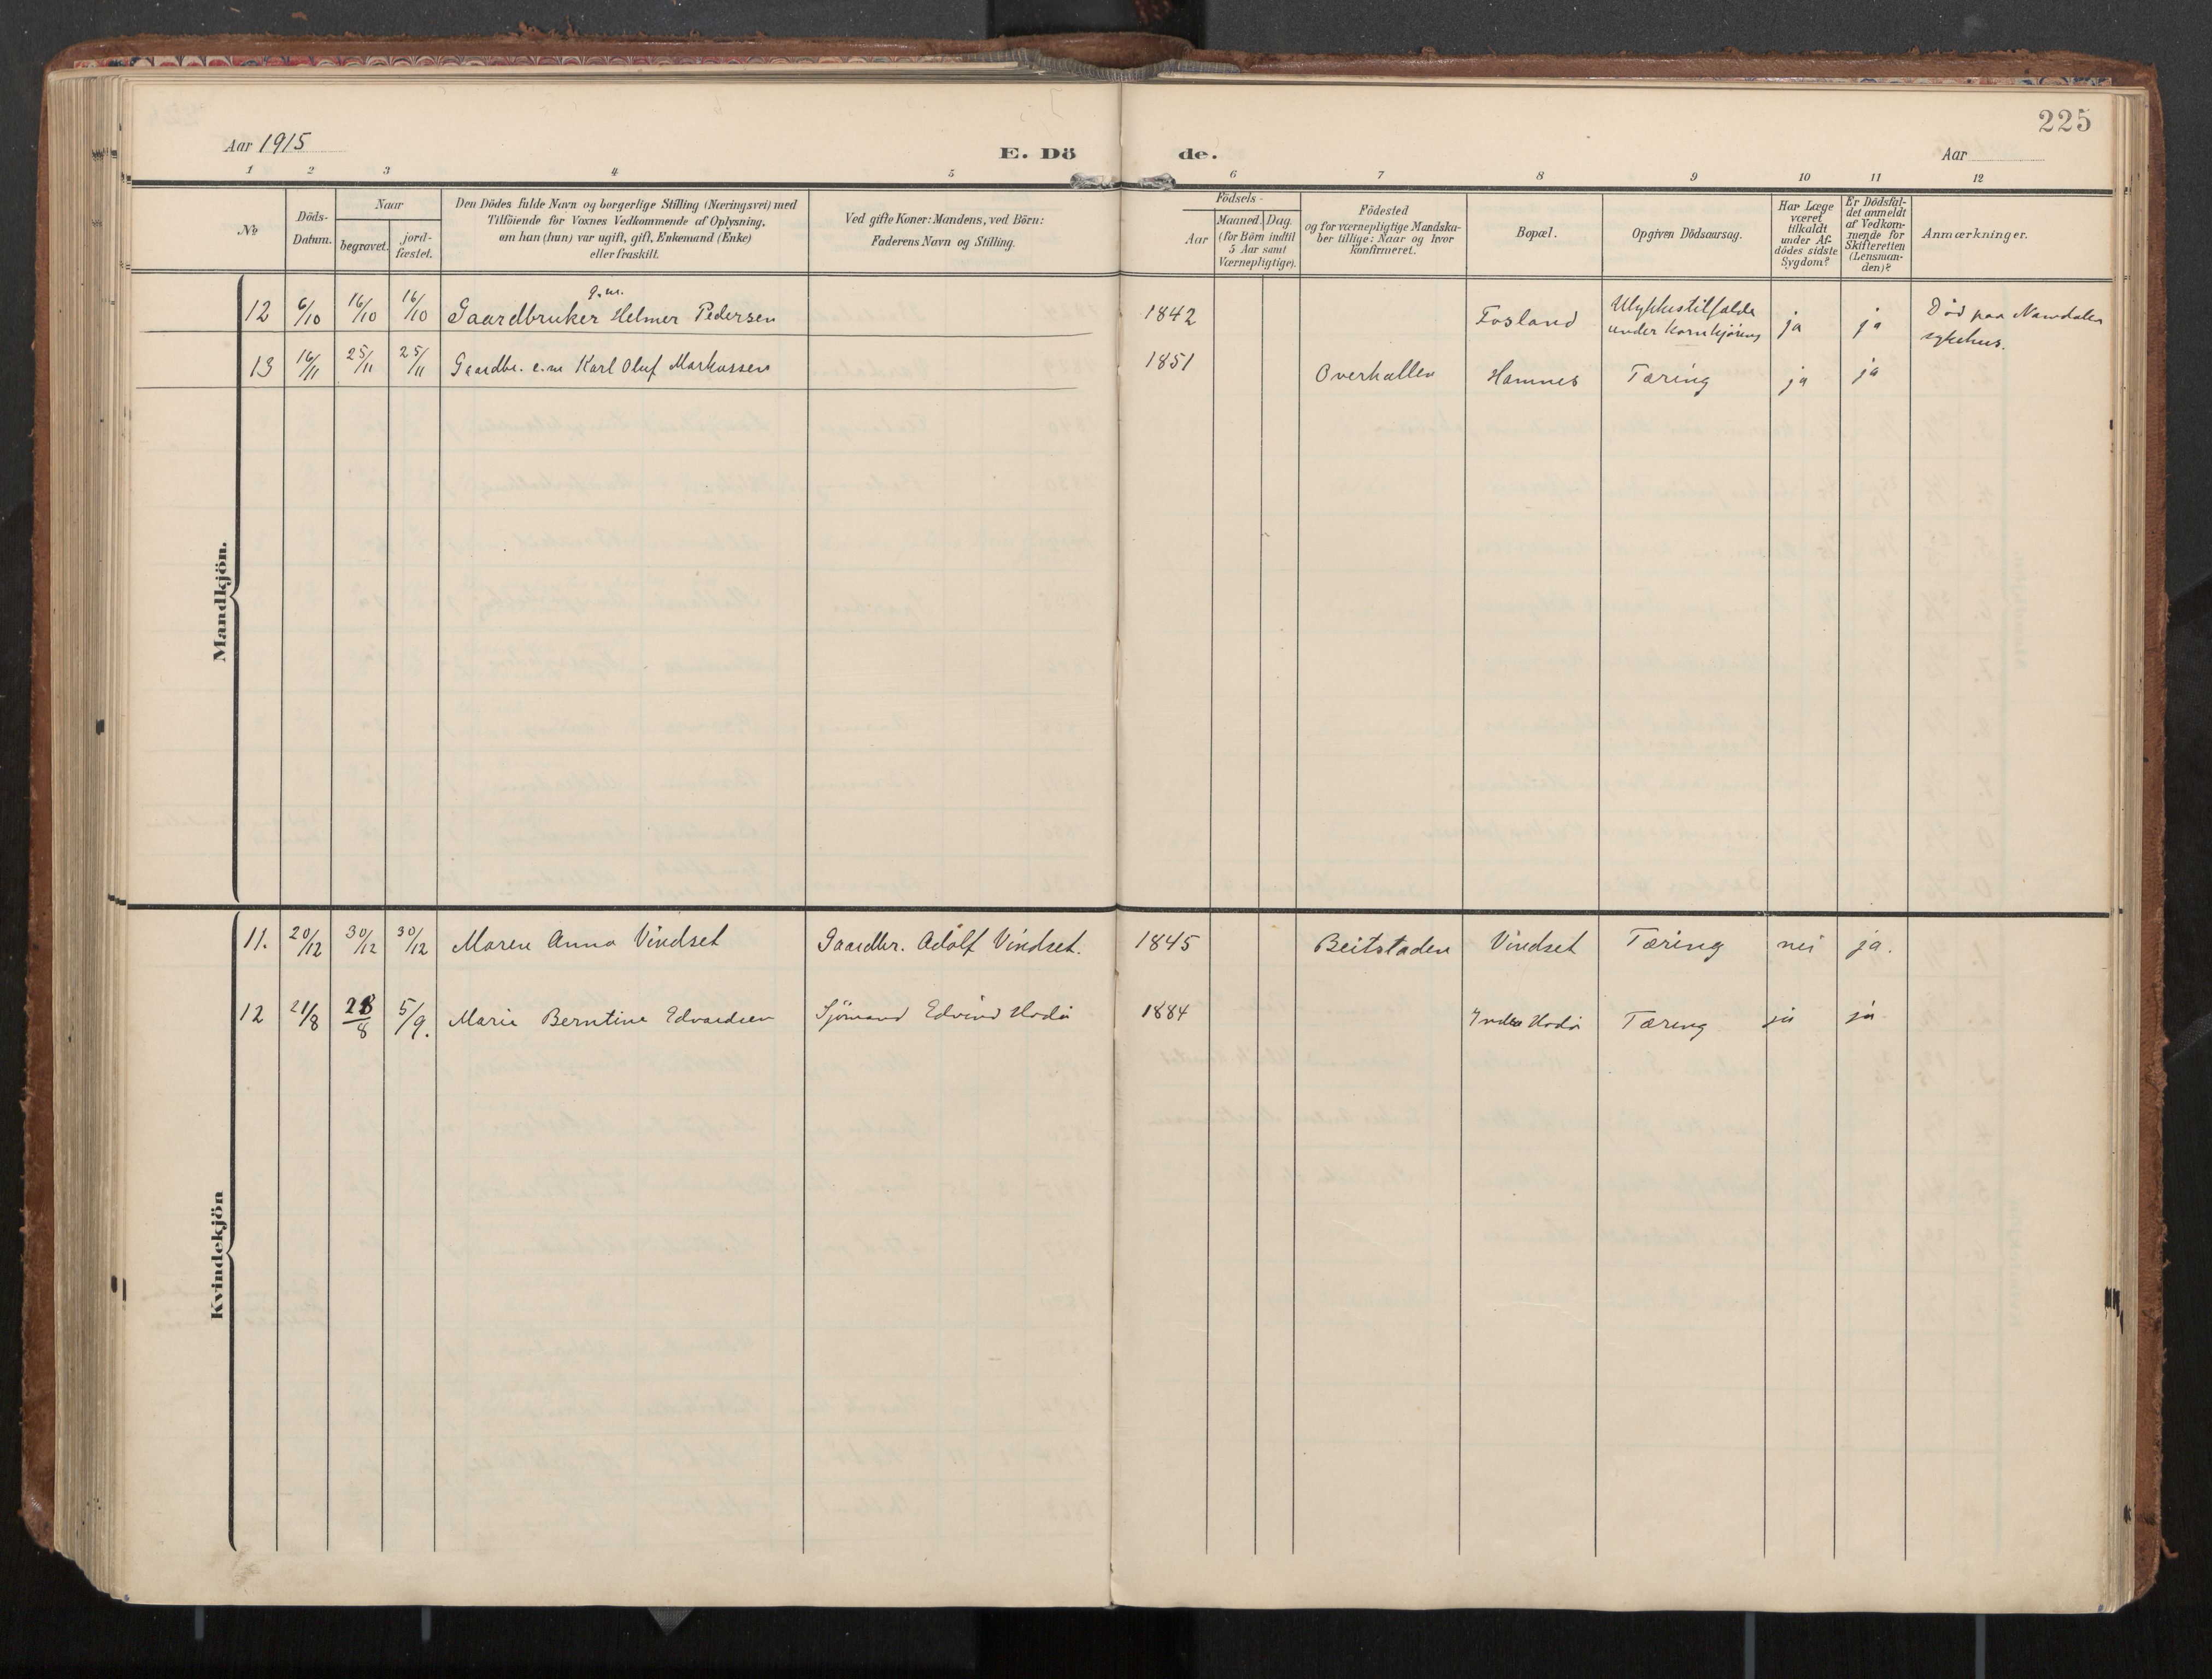 225
Aar 1915
E. Dö de.
Aar
1 2 3 4 5 6 7 8 9 10 11 12
No
Döds-
Datum.
Naar
begravet.
jord-
fæstet.
Den Dödes fulde Navn og borgerlige Stilling (Næringsvei) med
Tilföiende for Voxnes Vedkommende af Oplysning,
om han (hun) var ugift, gift, Enkemand (Enke)
eller fraskilt.
Ved gifte Koner: Mandens, ved Börn:
Faderens Navn og Stilling.
Födsels-
Aar
Maaned.
Dag.
(for Börn indtil
5 Aar samt
Værnepligtige).
Födested
og for værnepligtige Mandska-
ber tillige: Naar og hvor
konfirmeret.
Bopæl.
Opgiven Dödsaarsag.
Har Læge
været
tilkaldt
under Af-
dödes sidste
Sygdom?
Er Dödsfal-
det anmeldt
af Vedkom-
mende for
Skifteretten
(Lensman-
den)?
Anmærkninger.
Mandkjön.
g.m.
12 6/10 16/10 16/10 Gaardbruker Helmer Pedersen 1842 Fosland Ulykkestilfælde ja ja Död paa Namdalen
under kornkjöring sykehus.
13 16/11 25/11 25/11 Gaardbr. e.m Karl Oluf Markussen 1851 Overhallen Hamnes Tæring ja ja
Kvindekjön
11. 20/12 30/12 30/12 Maren Anna Vindset Gaardbr. Adolf Vindset. 1845 Beitstaden Vindset Tæring nei ja.
12 21/8 28/8 5/9. Marie Berntine Edvardsen Sjömand Edvind Hodö 1884 Indre Hodö Tæring ja ja